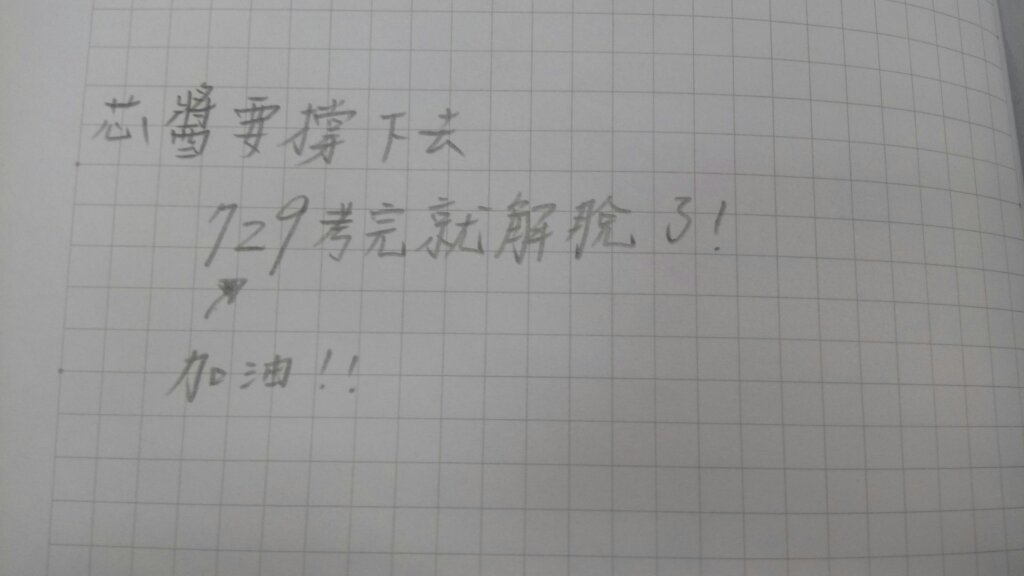 芯醬要撐下去
729考完就解脫了!
加油!!